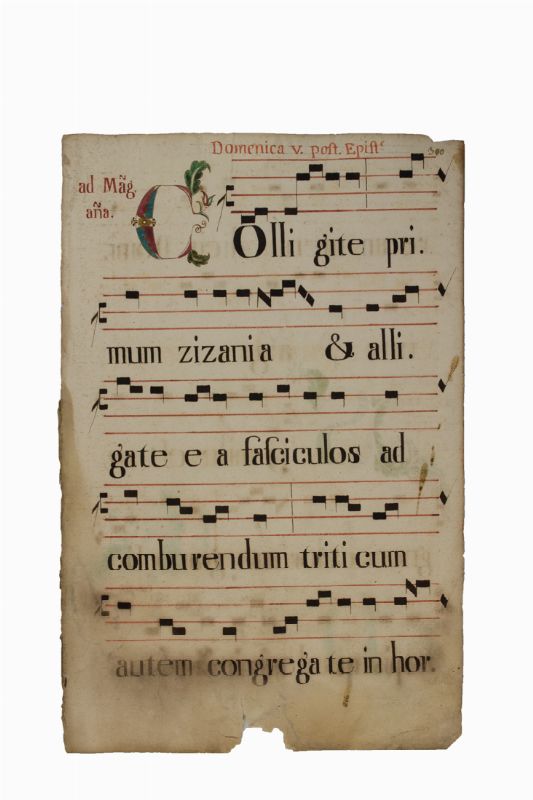 Domenica v. post. Epist.
ad Mag̃.
añā.
COlli gite pri.
mum zizania & alli.
gate e a faſciculos ad
combu rendum triti cum
autem congrega te in hor.